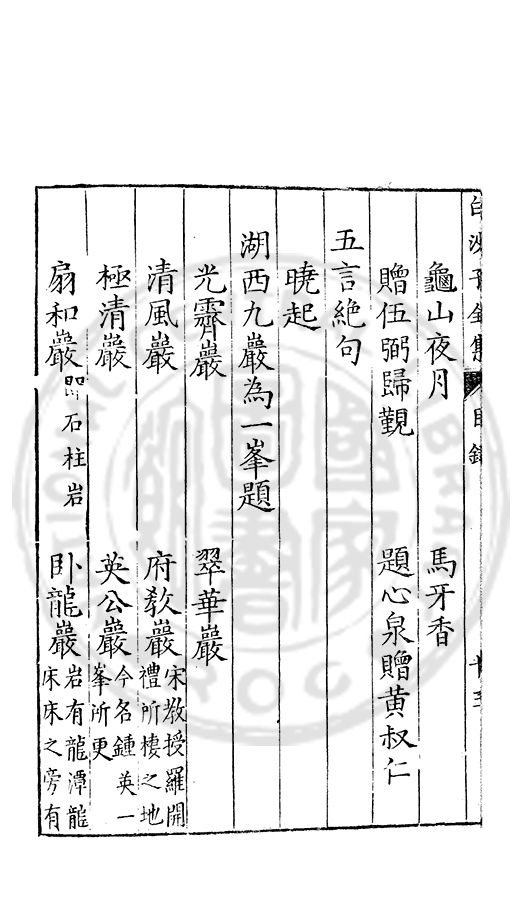 白沙子全集 目錄
龜山夜月 馬牙香
贈伍弼歸覲 題心泉贈黃叔仁
五言絶句
曉起
湖西九巖為一峯題
光霽巖 翠華巖
清風巖 府教巖 宋教授羅開
禮所棲之地
極清巖 英公巖 今名鍾英一
峯所更
扇和巖 即石柱岩 卧龍巖 岩有龍潭龍
床床之旁有